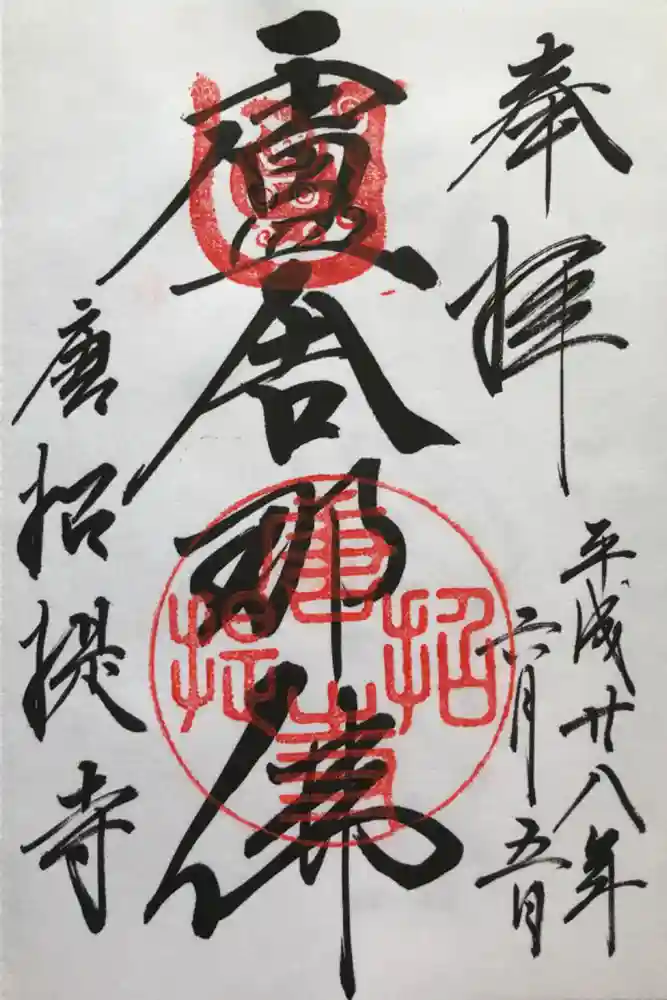 奉拝
平成廿八年
六月五日
盧舎那佛
唐招提寺
唐招提寺